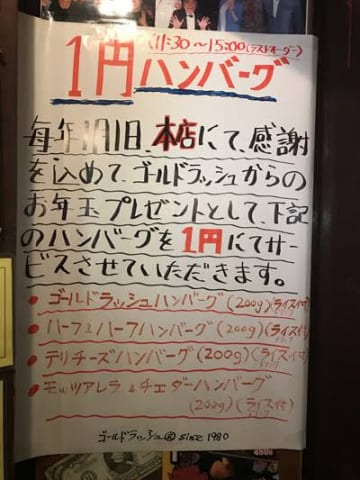 (11:30〜15:00(ラストオーダー)
1円ハンバーグ
毎年1月1日、本店にて、感謝
を込めて、ゴールドラッシュからの
お年玉プレゼントとして、下記
のハンバーグを1円にてサー
ビスさせていただきます。
• ゴールドラッシュハンバーグ(200g)(ライス付)
• ハーフ&ハーフハンバーグ(200g)(ライス付)
• テリチーズハンバーグ(200g)(ライス付)
• モッツアレラ&チェダーハンバーグ
(200g)(ライス付)
ゴールドラッシュ® since 1980
450g